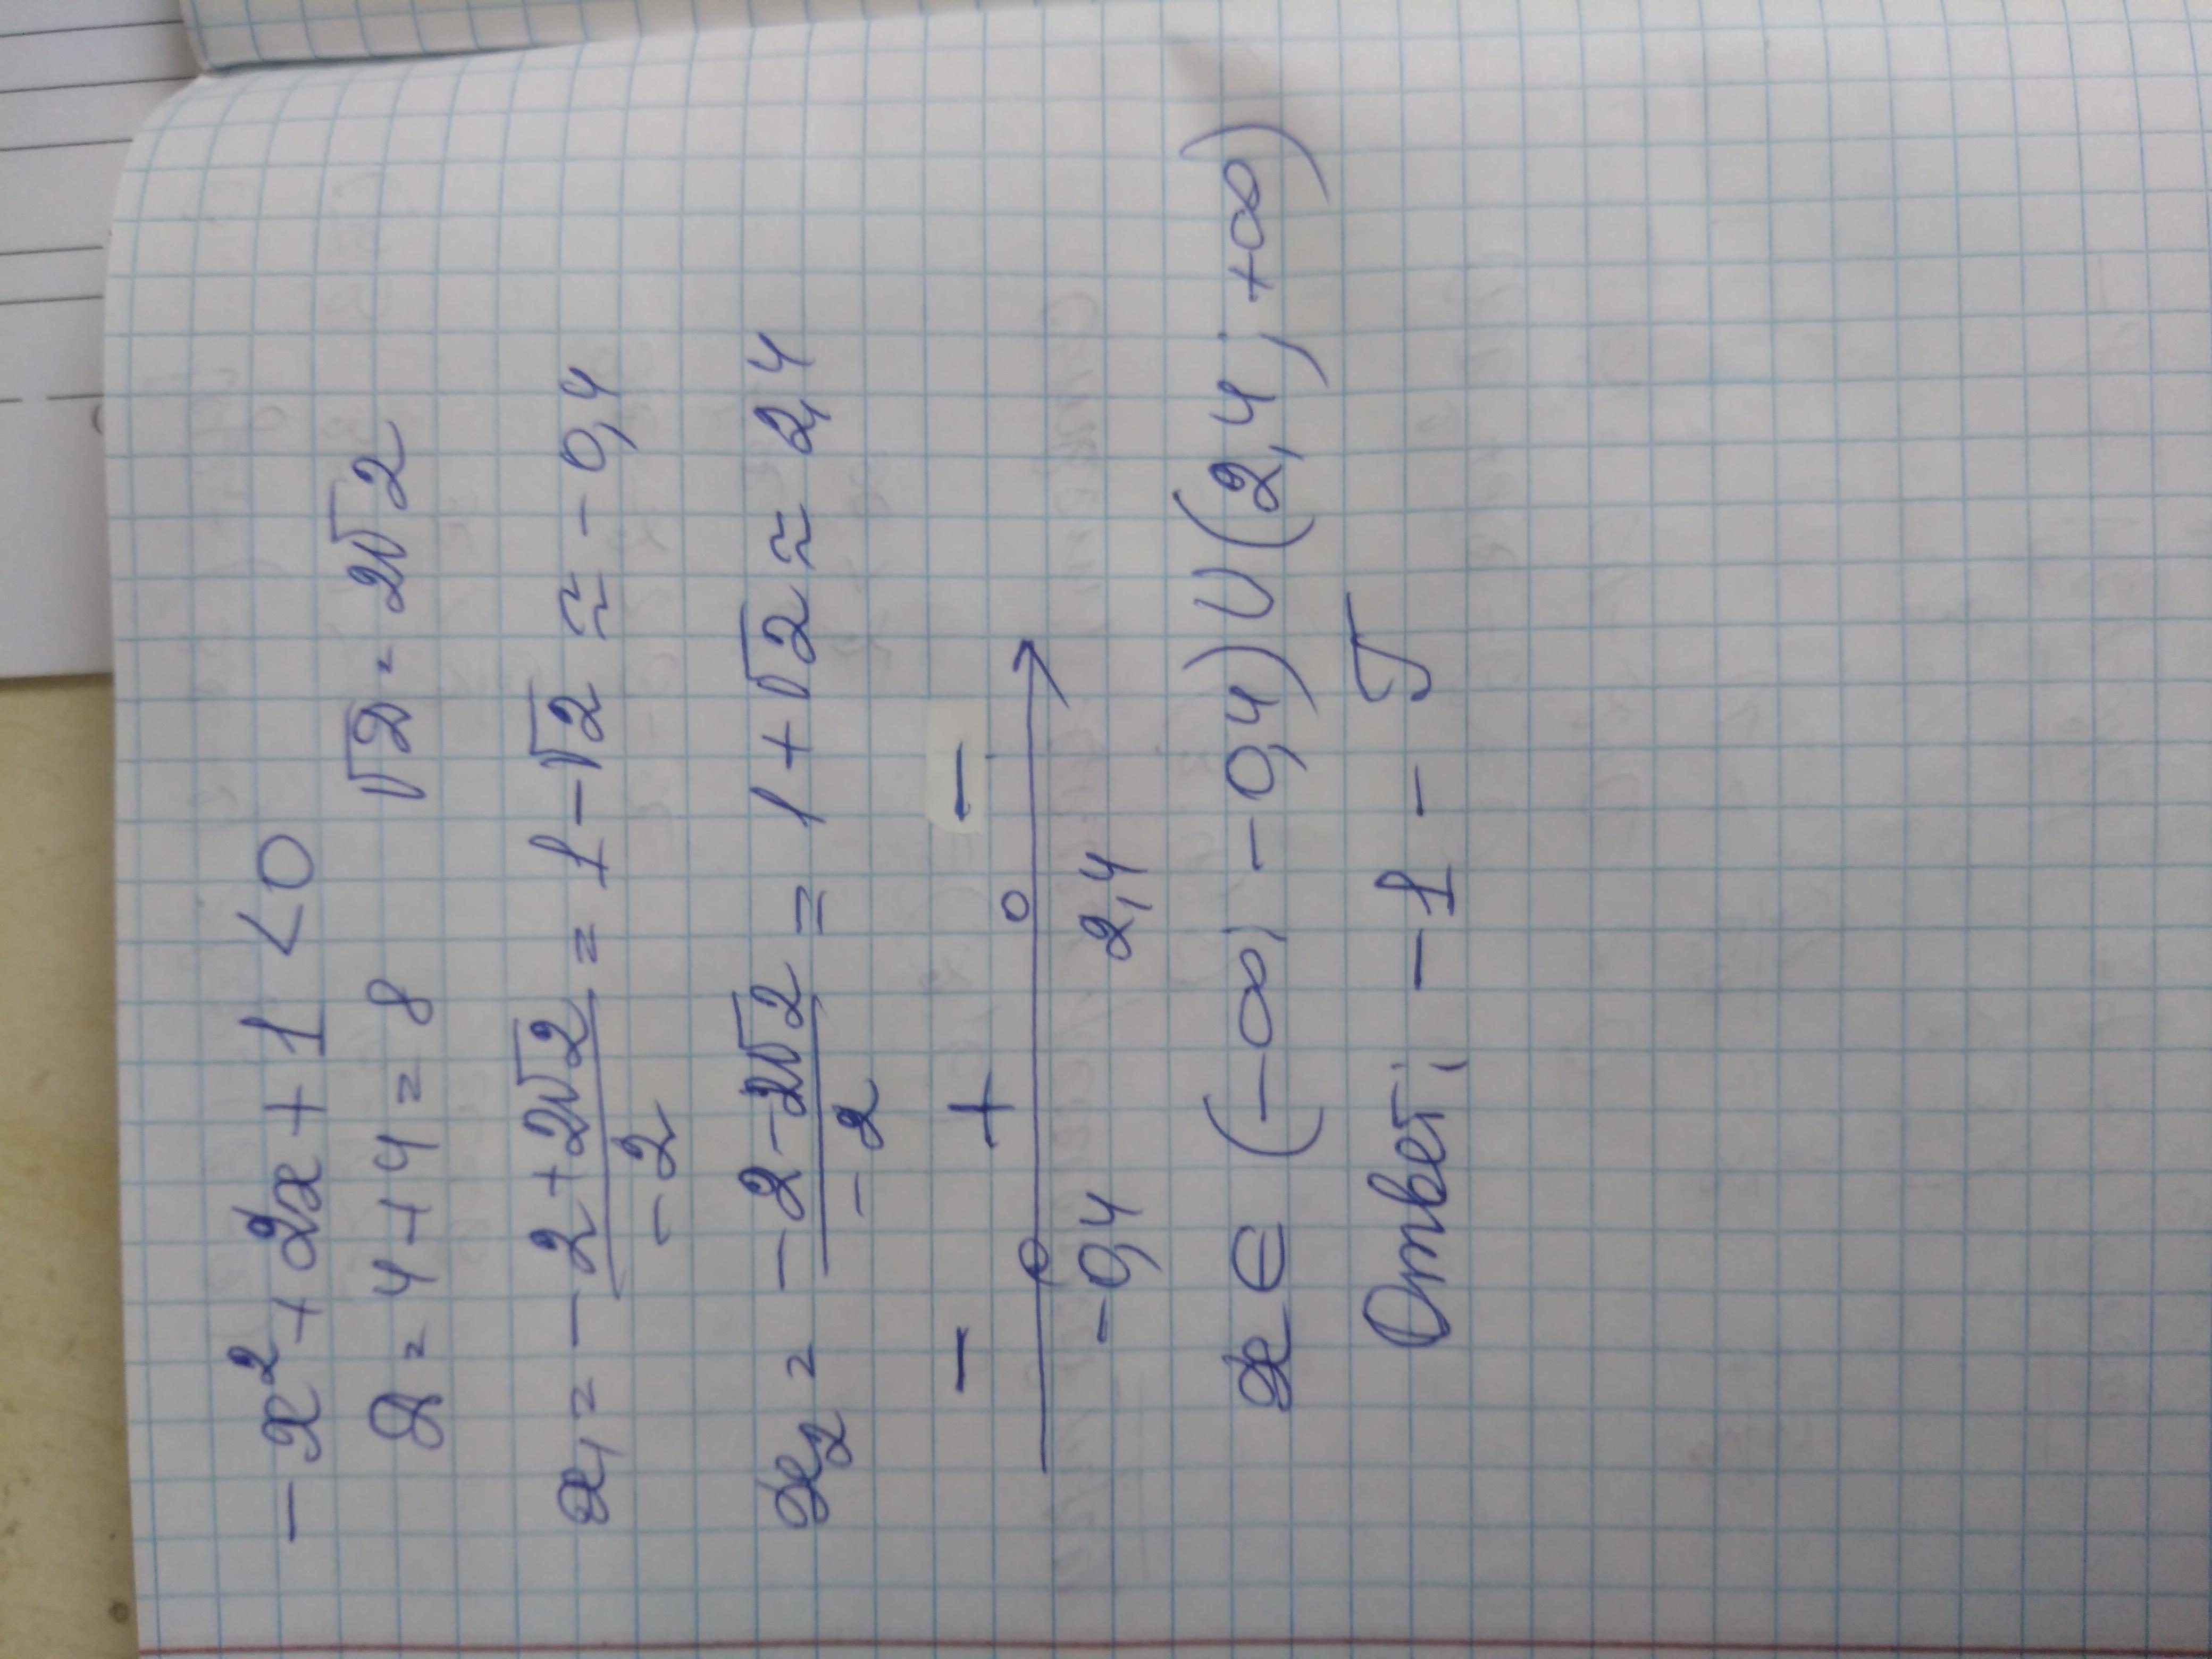 -x² + 2x + 1 < 0
D = 4 + 4 = 8   √D = 2√2
x₁ = (-2+2√2)/(-2) = 1-√2 ≈ -0,4
x₂ = (-2-2√2)/(-2) = 1+√2 ≈ 2,4
- + -
-0,4 2,4
x ∈ (-∞; -0,4) ∪ (2,4; +∞)
Ответ: -1 - Б